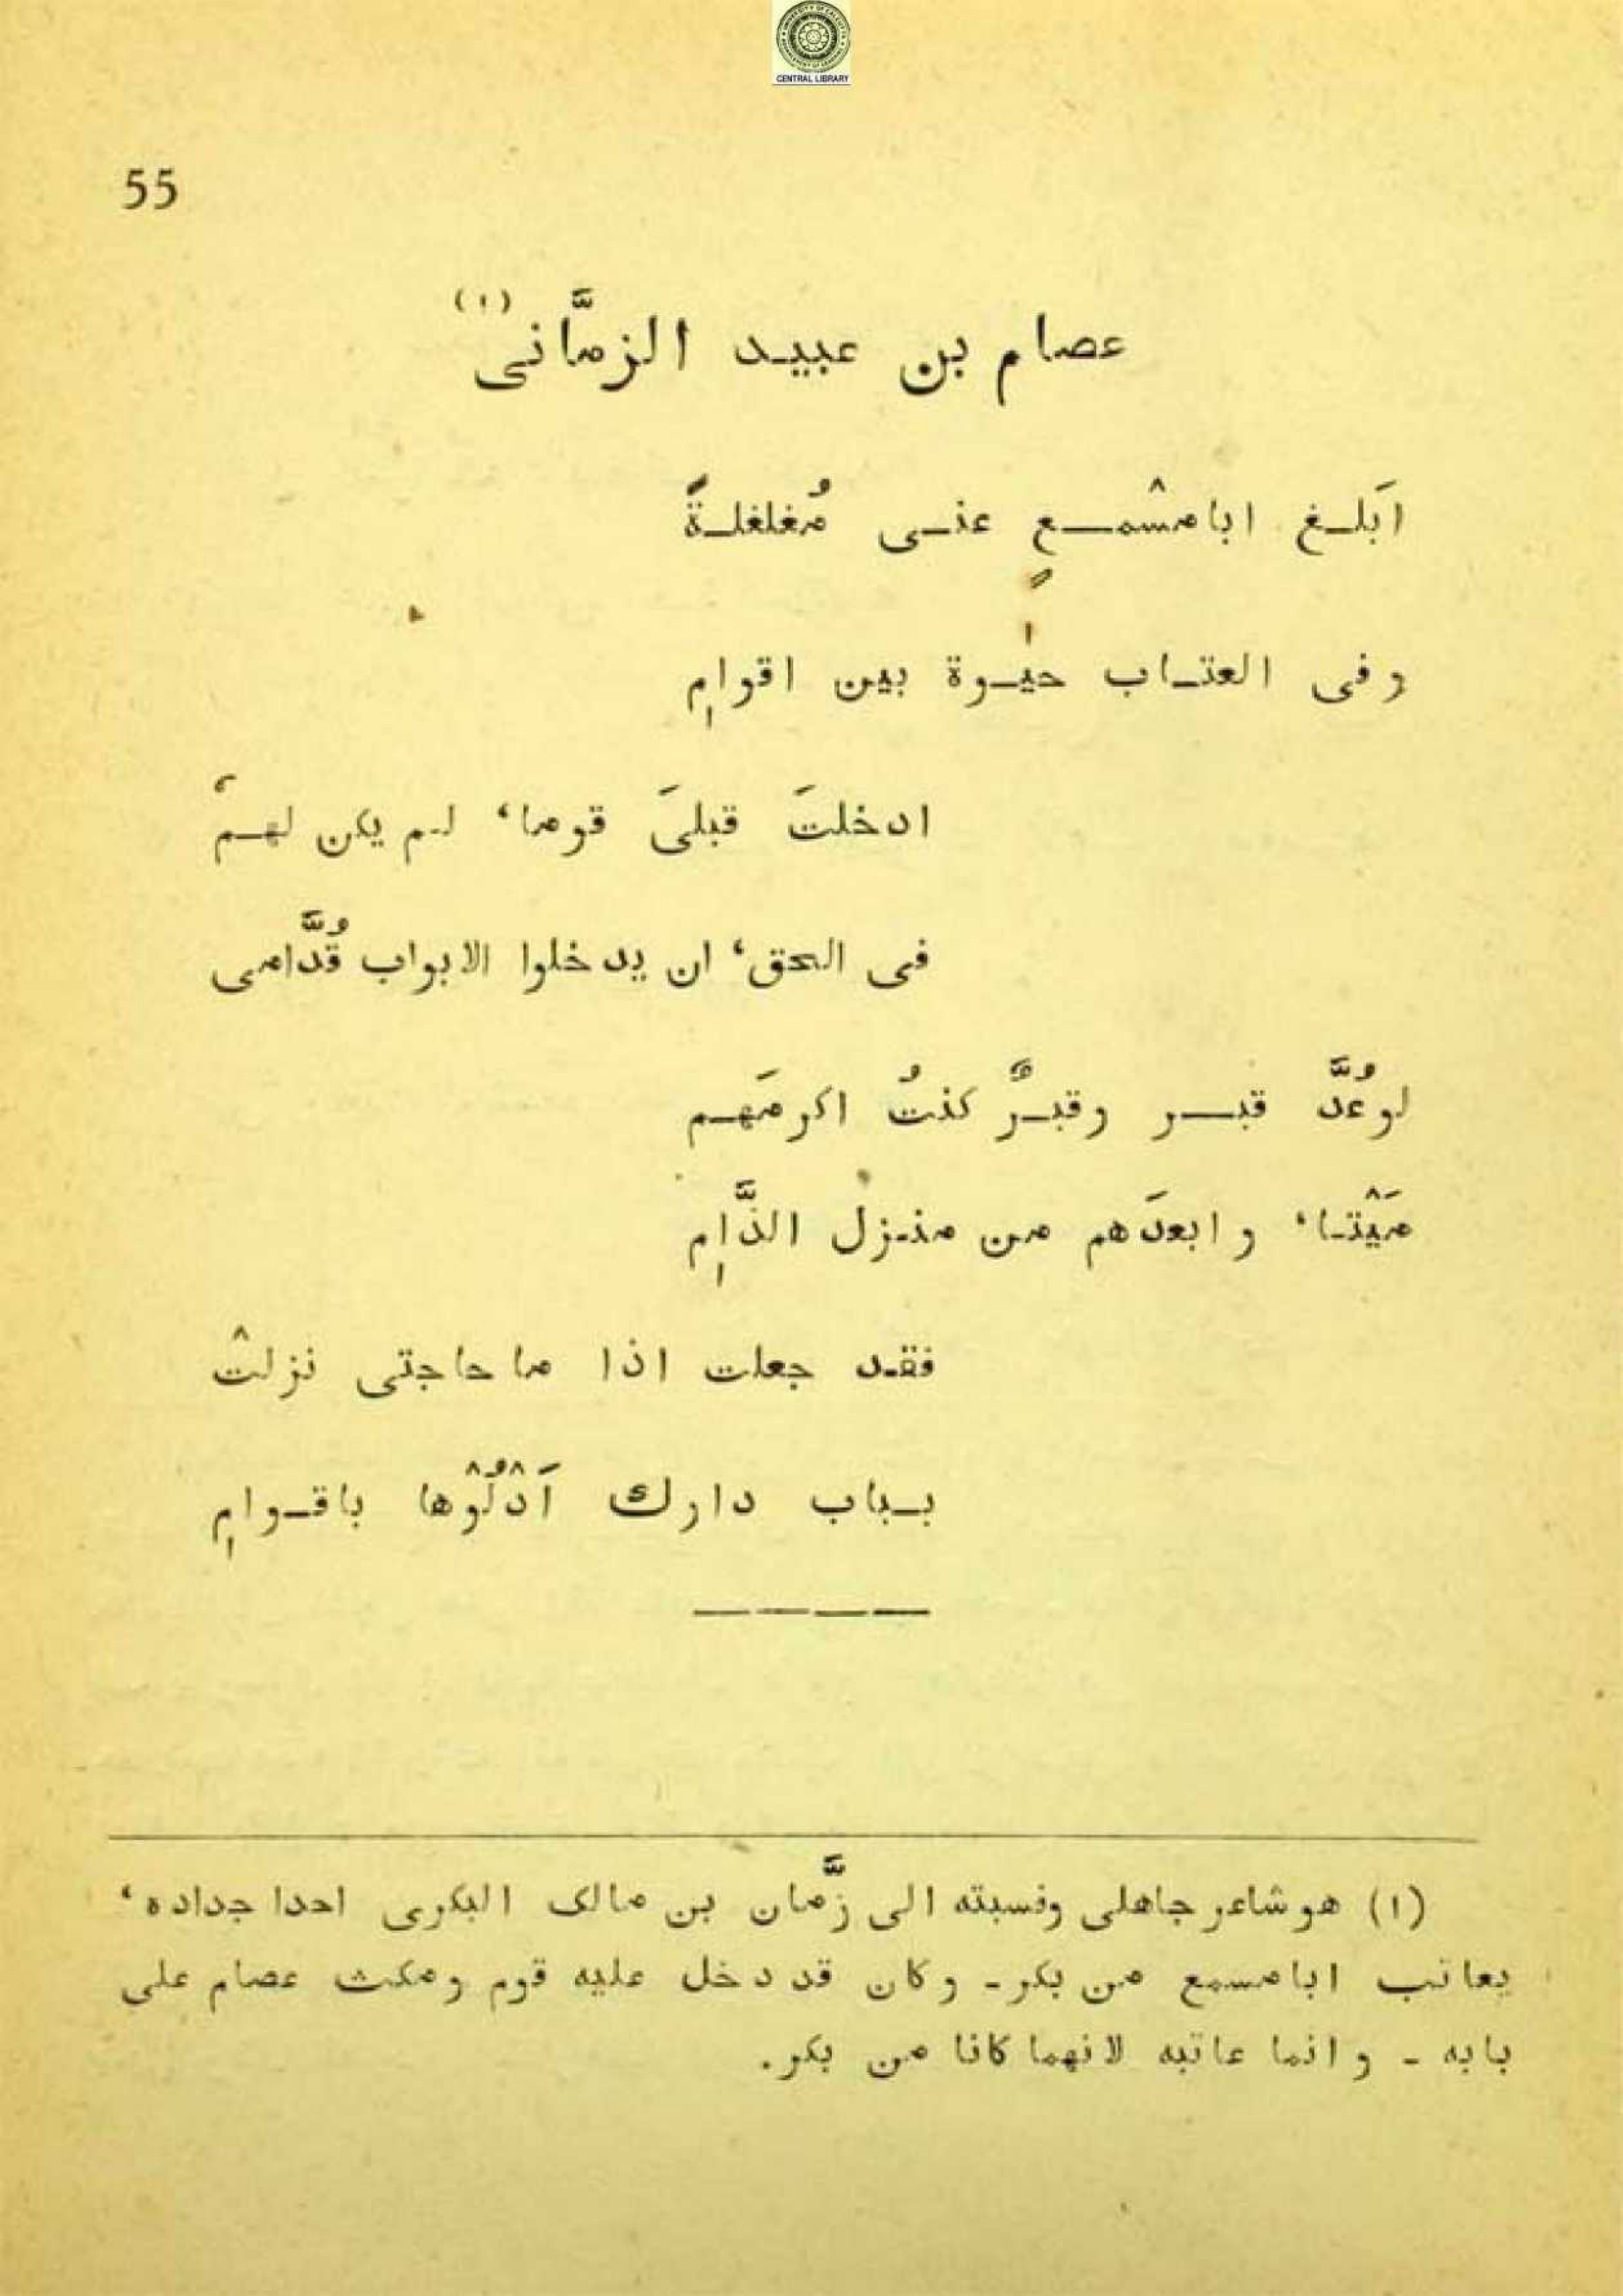 CENTRAL LIBRARY
55
عصام بن عبيد الزمَّانى (١)
اَبلـغ ابا مسْمـعٍ عنـى مُغلغلـةً
و فى العتـاب حيٰـوة بين اقوامِ
ادخلتَ قبلىَ قوما، لـم يكن لهـمُ
فى الحق، ان يدخلوا الابواب قُدَّامى
لو عُدَّ قبـر وقبـرٌ كنتُ اكرمَهـم
مَيْتـا، و ابعدَهم من منـزل الذَّامِ
فقـد جعلت اذا ما حاجتى نزلتْ
بـباب دارك اَدْلُوْها باقـوامِ
(١) هو شاعر جاهلى ونسبته الى زَّمان بن مالك البكرى احدا جداده،
يعاتب ابا مسمع من بكر ـ وكان قد دخل عليه قوم ومكث عصام على
بابه ـ و انما عاتبه لانهما كانا من بكر.